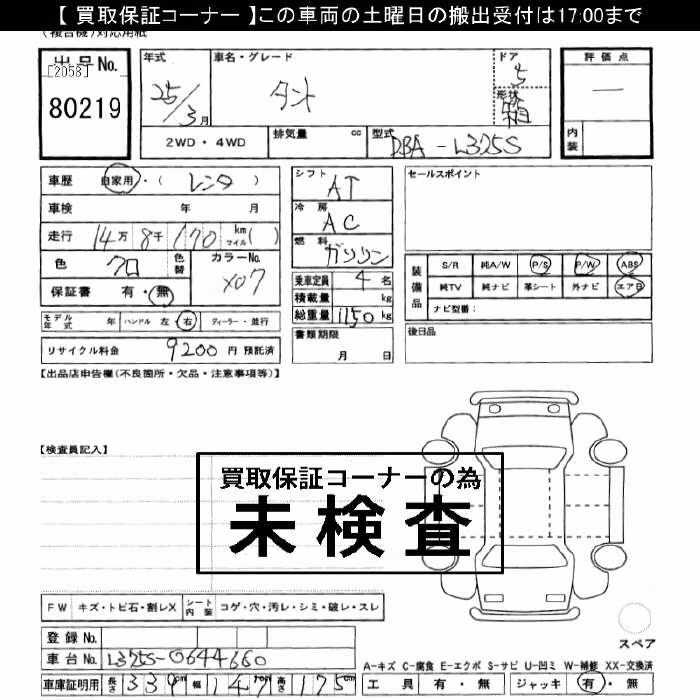 【 買取保証コーナー 】この車両の土曜日の搬出受付は17:00まで
(複合機)対応用紙
出品No.
[2058]
80219
年式
25/3月
車名・グレード
タント
ドア
5
形状
箱
評価点
—
内装
2WD・4WD
排気量 cc
型式
DBA-L325S
車歴 自家用・( レンタ )
車検 年 月
走行 14万 8千 170 km マイル( )
色 クロ 色替 カラーNo. X07
保証書 有・無
モデル年式 年 ハンドル 左 右 ディーラー・並行
リサイクル料金 9200 円 預託済
シフト AT
冷房 AC
燃料 ガソリン
乗車定員 4 名
積載量 kg
総重量 1150 kg
書類期限
月 日
セールスポイント
装備品
S/R 純A/W P/S P/W ABS
純TV 純ナビ 革シート 外ナビ エアB
ナビ型番:
後日品
【出品店申告欄(不良箇所・欠品・注意事項等)】
【検査員記入】
買取保証コーナーの為
未検査
FW キズ・トビ石・割レX シート内装 コゲ・穴・汚レ・シミ・破レ・スレ
登録No.
車台No. L325S-0644660
車庫証明用 長さ 339cm 幅 147cm 高さ 175cm
スペア
A-キズ C-腐食 E-エクボ S-サビ U-凹ミ W-補修 XX-交換済
工具 有・無 ジャッキ 有・無